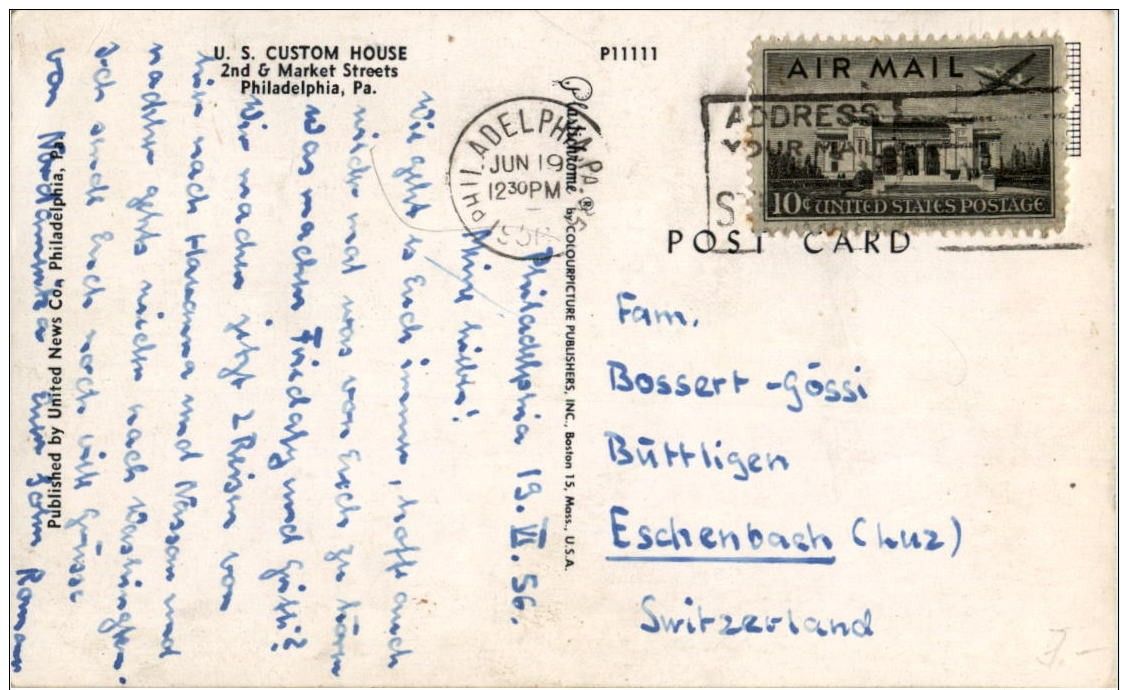 U. S. CUSTOM HOUSE
2nd & Market Streets
Philadelphia, Pa.
P11111
AIR MAIL
10¢ UNITED STATES POSTAGE
ADDRESS
YOUR MAIL
PHILADELPHIA, PA.
JUN 19
12 30 PM
1956
POST CARD
Plastichrome ® by COLOURPICTURE PUBLISHERS, INC., Boston 15, Mass., U.S.A.
Published by United News Co., Philadelphia, Pa.
Philadelphia 19. VI. 56.
Meine
Wie geht es Euch immer, hoffe auch
wieder mal was von Euch zu hören
Was machen Friedoly und Götti?
Wir machen jetzt 2 Reisen von
hier nach Havanna und Nassau und
nachher gehts wieder nach Washington.
Ich sende Euch noch viele Grüsse
von Nordamerika Euer Sohn Roman
Fam.
Bossert-Gössi
Büttligen
Eschenbach (Luz)
Switzerland